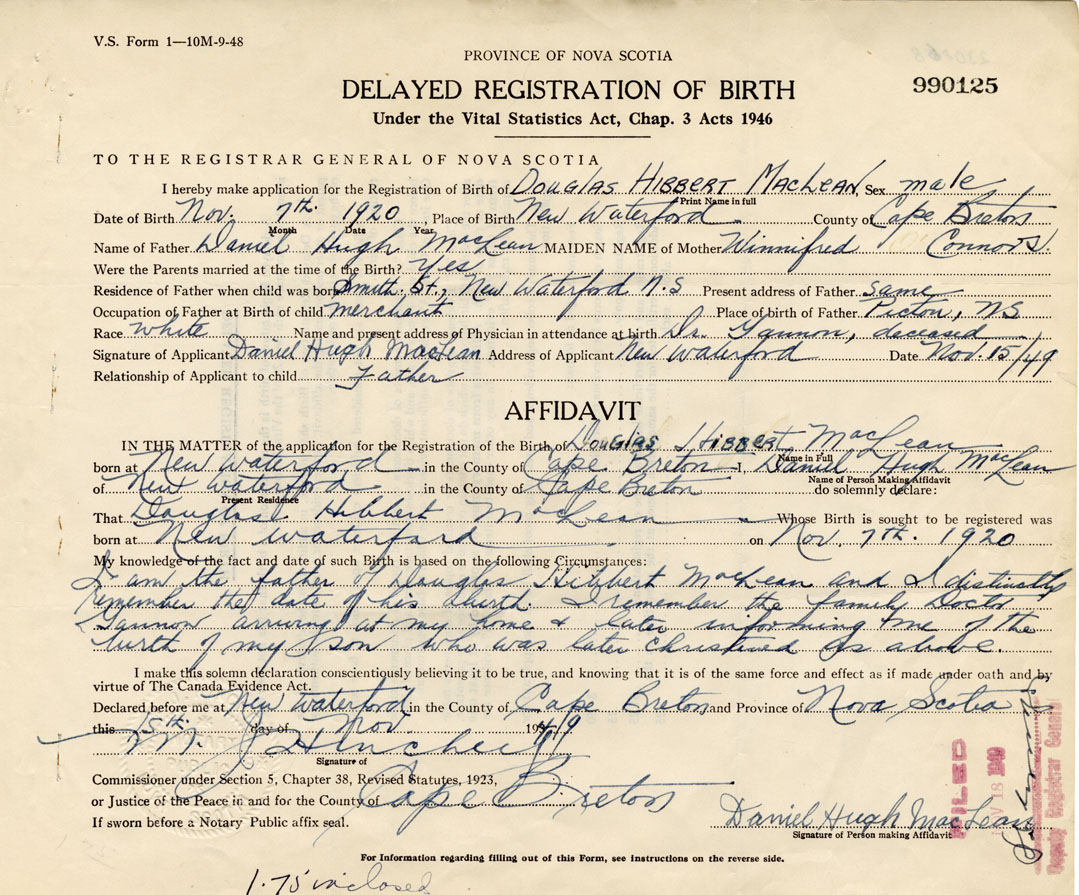 V.S. Form 1—10M-9-48
PROVINCE OF NOVA SCOTIA
990125
DELAYED REGISTRATION OF BIRTH
Under the Vital Statistics Act, Chap. 3 Acts 1946
TO THE REGISTRAR GENERAL OF NOVA SCOTIA
I hereby make application for the Registration of Birth of DOUGLAS HIBBERT MACLEAN, Sex male
Print Name in full
Date of Birth Nov. 7th. 1920, Place of Birth New Waterford County of Cape Breton
Month Date Year
Name of Father Daniel Hugh MacLean MAIDEN NAME of Mother Winnifred Connors.
Were the Parents married at the time of the Birth? Yes
Residence of Father when child was born Smith. St., New Waterford N.S Present address of Father same
Occupation of Father at Birth of child merchant Place of birth of Father Picton, NS
Race white Name and present address of Physician in attendance at birth Dr. Gannon, deceased
Signature of Applicant Daniel Hugh MacLean Address of Applicant New Waterford Date Nov. 15/49
Relationship of Applicant to child Father
AFFIDAVIT
IN THE MATTER of the application for the Registration of the Birth of DOUGLAS HIBBERT MacLean
Name in Full
born at New Waterford in the County of Cape Breton I, Daniel Hugh MacLean
Name of Person Making Affidavit
of New Waterford in the County of Cape Breton do solemnly declare:
Present Residence
That Douglas Hibbert McLean Whose Birth is sought to be registered was
born at New Waterford on Nov. 7th. 1920
My knowledge of the fact and date of such Birth is based on the following Circumstances:
I am the father of Douglas Hibbert MacLean and I distinctly
remember the date of his birth. I remember the family Doctor
Gannon arriving at my home & later informing me of the
birth of my son who was later christened as above.
I make this solemn declaration conscientiously believing it to be true, and knowing that it is of the same force and effect as if made under oath and by
virtue of The Canada Evidence Act.
Declared before me at New Waterford in the County of Cape Breton and Province of Nova Scotia
this 15th. day of Nov 1949
M. J. Hinchey
Signature of
Commissioner under Section 5, Chapter 38, Revised Statutes, 1923,
or Justice of the Peace in and for the County of Cape Breton
If sworn before a Notary Public affix seal.
Daniel Hugh MacLean
Signature of Person making Affidavit
FILED
18 1949
Deputy Registrar General
For Information regarding filling out of this Form, see instructions on the reverse side.
1.75 inclosed